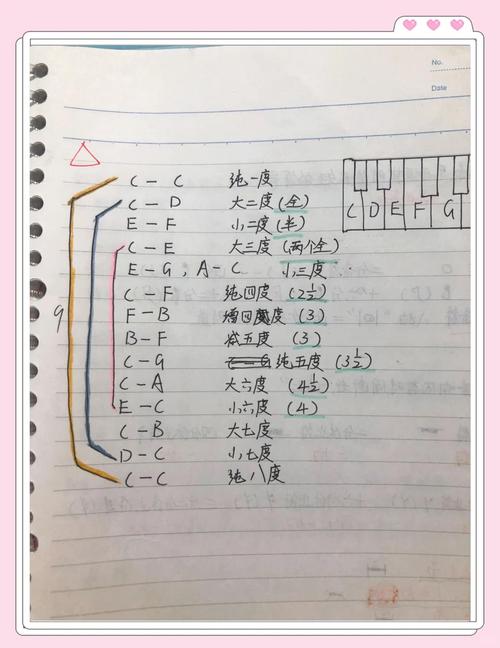 No.
Date
C — C 纯一度
C — D 大二度(全)
E — F 小二度(半)
C — E 大三度(两个全)
E — G , A — C 小三度
C — F 纯四度 (2½)
F — B 增四度 (3)
B — F 减五度 (3)
C — G 纯五度 (3½)
C — A 大六度 (4½)
E — C 小六度 (4)
C — B 大七度
D — C 小七度
C — C 纯八度
9
C D E F G